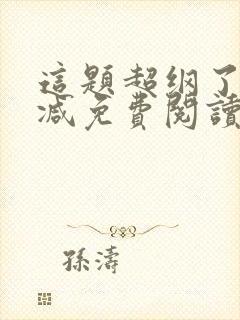 這題超綱了
減免費閱讀
孫濤